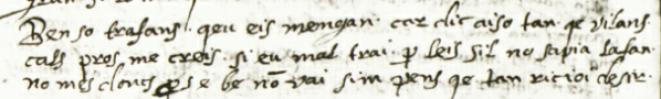 Ben so trafans · qeu eis memgan · car dic aiso tan · qe vilans
cals pros me creis · si eu mal trai · p leis sil no sapia lafan ·
no mes clous ps e be nō vai sim pens qe tan ricioi desir ·